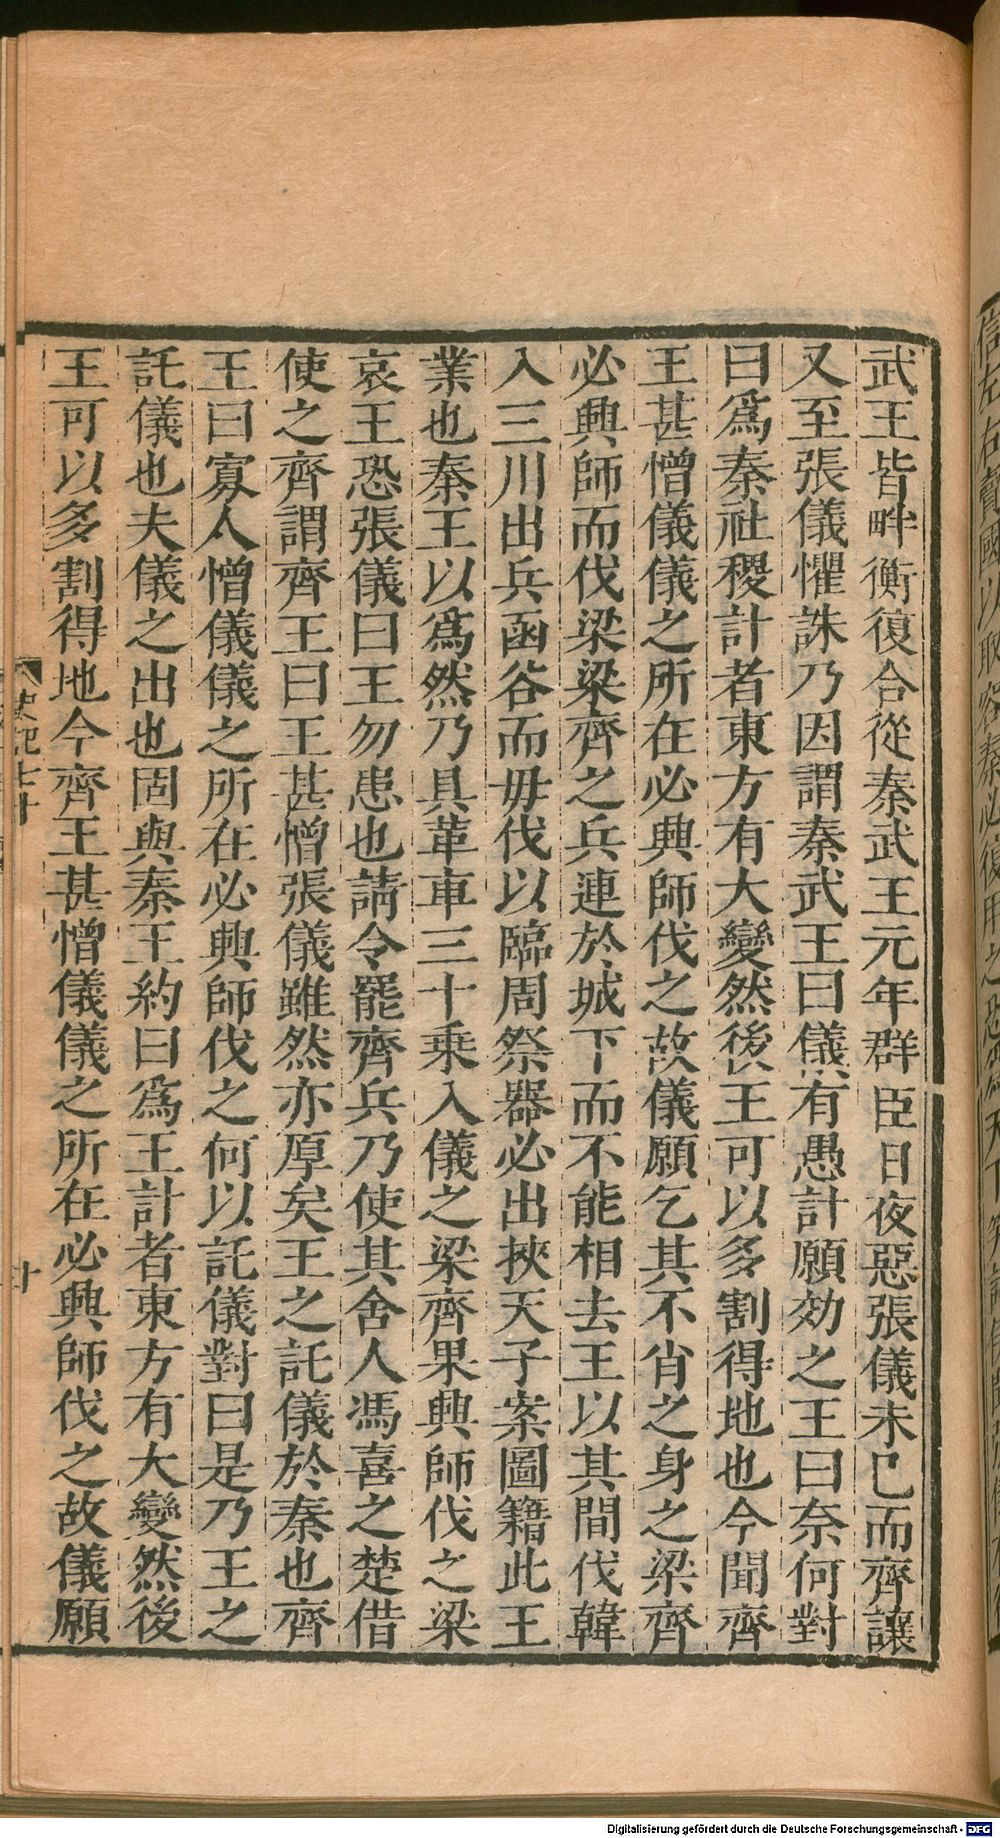 武王皆畔衡復合從秦武王元年群臣日夜惡張儀未已而齊讓
又至張儀懼誅乃因謂秦武王曰儀有愚計願効之王曰奈何對
曰爲秦社稷計者東方有大變然後王可以多割得地也今聞齊
王甚憎儀儀之所在必興師伐之故儀願乞其不肖之身之梁齊
必興師而伐梁梁齊之兵連於城下而不能相去王以其間伐韓
入三川出兵函谷而毋伐以臨周祭器必出挾天子案圖籍此王
業也秦王以爲然乃具革車三十乘入儀之梁齊果興師伐之梁
哀王恐張儀曰王勿患也請令罷齊兵乃使其舍人馮喜之楚借
使之齊謂齊王曰王甚憎張儀雖然亦厚矣王之託儀於秦也齊
王曰寡人憎儀儀之所在必興師伐之何以託儀對曰是乃王之
託儀也夫儀之出也固與秦王約曰爲王計者東方有大變然後
王可以多割得地今齊王甚憎儀儀之所在必興師伐之故儀願
史記七十
十
Digitalisierung gefördert durch die Deutsche Forschungsgemeinschaft - DFG